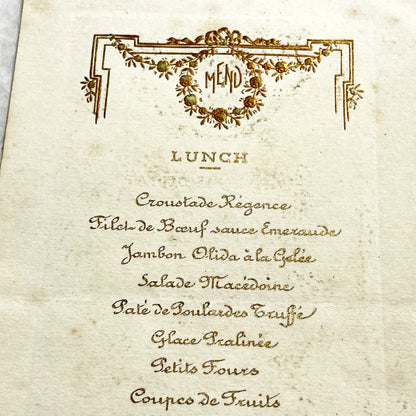 MENU
LUNCH
Croustade Régence
Filet de Bœuf sauce Emeraude
Jambon Olida à la Gelée
Salade Macédoine
Paté de Poulardes Truffé
Glace Pralinée
Petits Fours
Coupes de Fruits